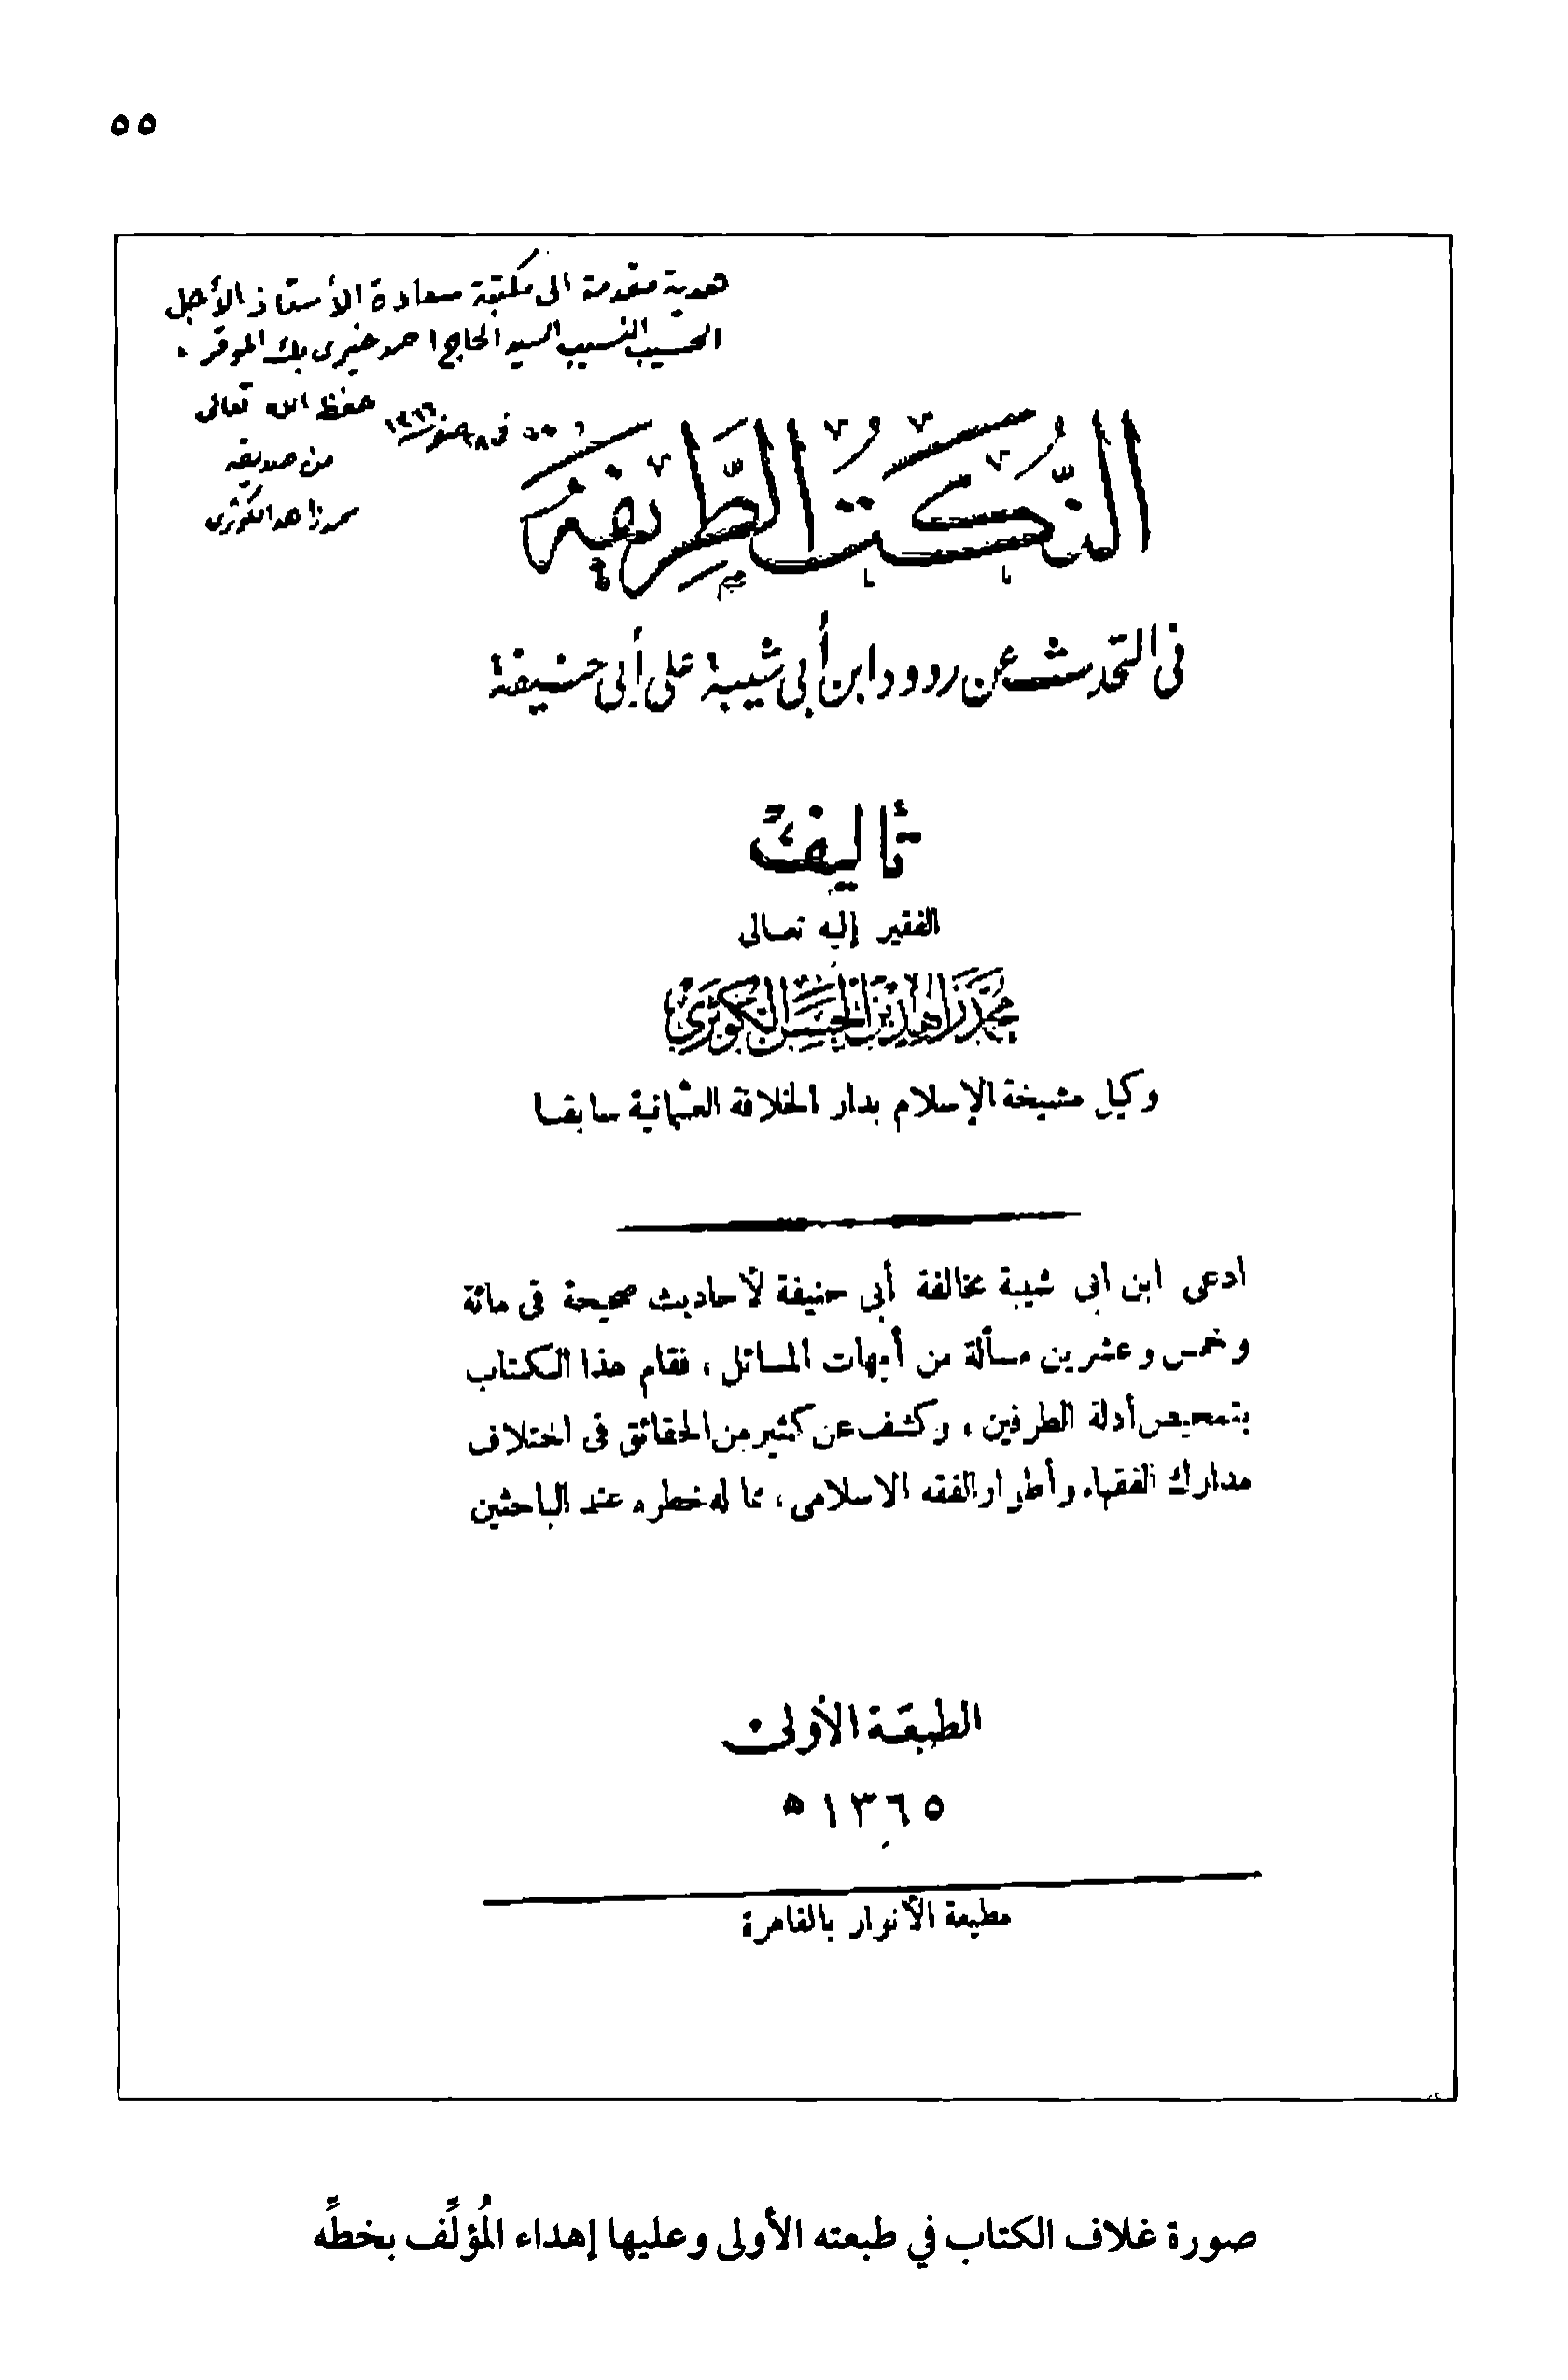 ٥٥
هدية مقدمة الى مكتبة سعادة الأستاذ الأجل
الحسيب النسيب السيد الحاج احمد خيرى بك الموقر .
حفظه الله تعالى
فى ١٨ صفر سنة ١٣٦٦
من صديقه
محمد زاهد الكوثرى
النُّكَتُ الطَّرِيفَةُ
فى التحدث عن ردود ابن أبي شيبة على أبي حنيفة
تأليف
الفقير إليه تعالى
محمد زاهد بن الحسن الكوثري
وكيل مشيخة الإسلام بدار الخلافة العثمانية سابقا
ادعى ابن ابى شيبة مخالفة أبي حنيفة لأحاديث صحيحة فى مائة
وخمس وعشرين مسألة من أمهات المسائل ، فقام هذا الكتاب
بتمحيص أدلة الطرفين ، وكشف عن كثير من الحقائق فى اختلاف
مدارك الفقهاء وأطوار الفقه الاسلامى ، مما له خطره عند الباحثين
الطبعة الأولى
١٣٦٥ ه
مطبعة الأنوار بالقاهرة
صورة غلاف الكتاب في طبعته الأولى وعليها إهداء المُؤلِّف بخطِّه